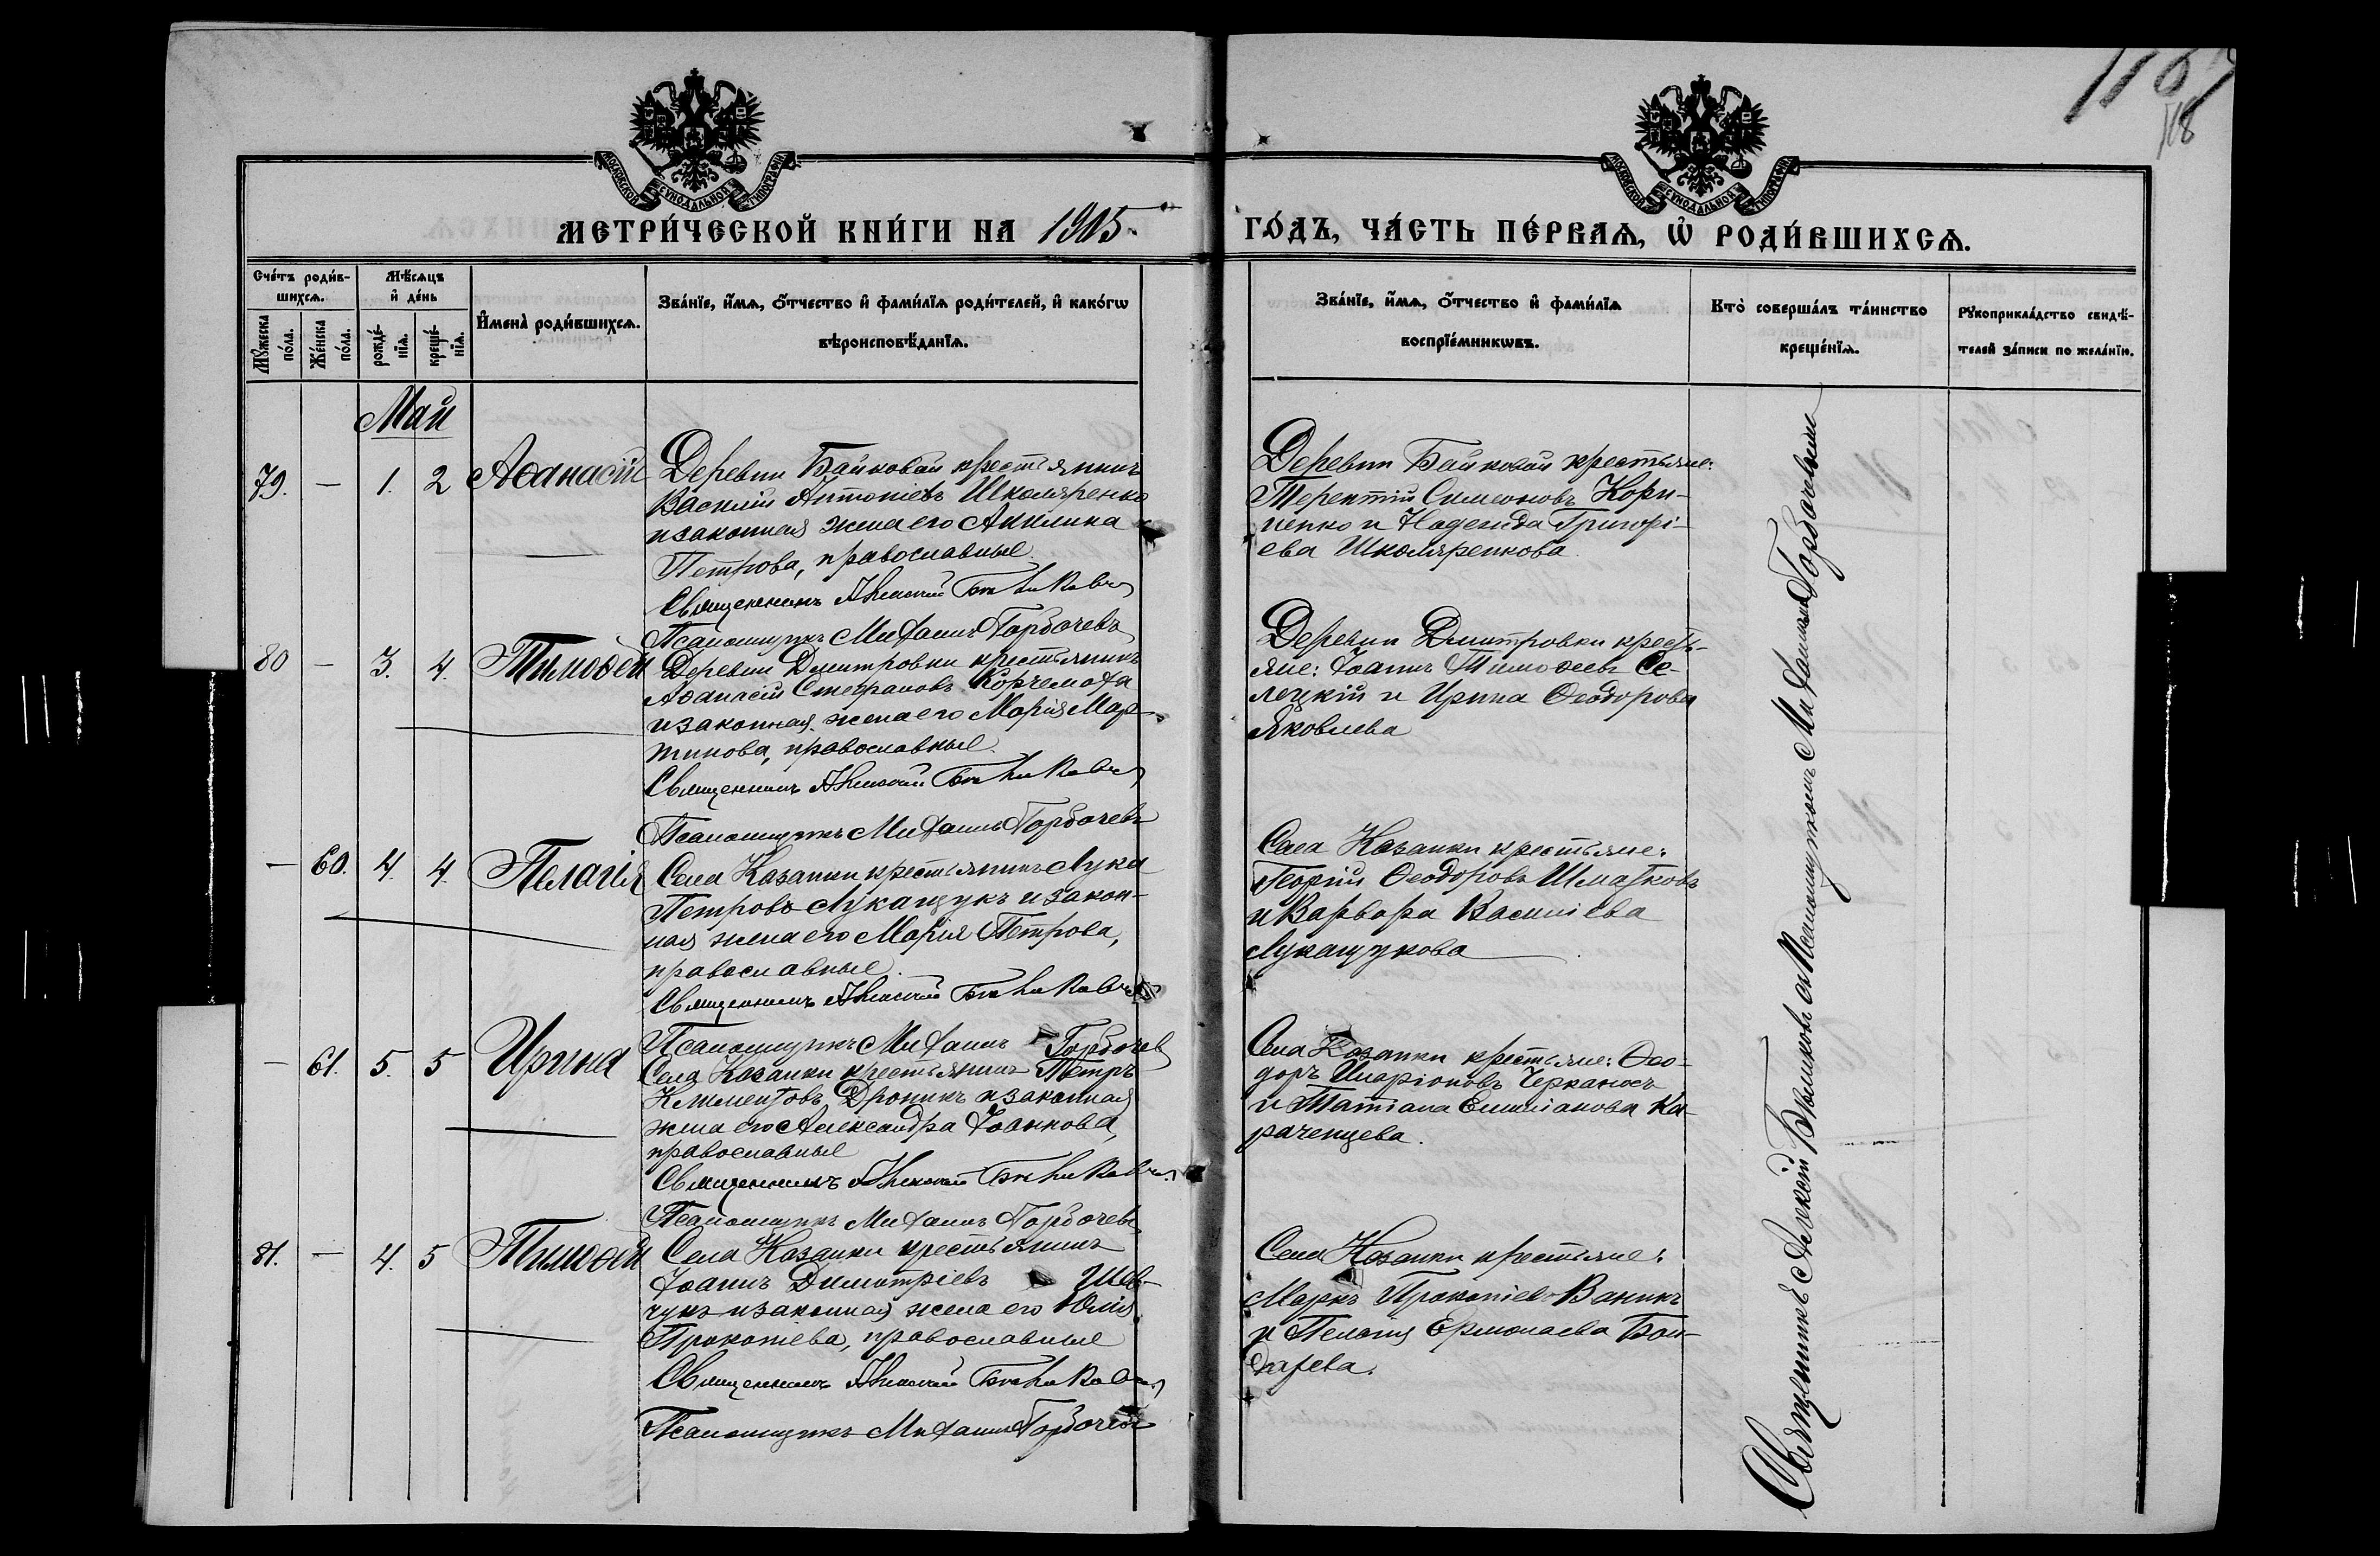 118
МОСКОВСКОЙ СѴНОДАЛЬНОЙ ТИПОГРАФІИ
МОСКОВСКОЙ СѴНОДАЛЬНОЙ ТИПОГРАФІИ
МЕТРИ́ЧЕСКОЙ КНИ́ГИ НА 1905
ГО́ДЪ, ЧА́СТЬ ПЕ́РВАѦ, Ѡ҆ РОДИ́ВШИХСѦ.
Сче́тъ роди́в-
шихсѧ.
Мꙋ́жеска по́ла.
Же́нска по́ла.
Мѣ́сѧцъ
и҆ де́нь
рожде́-
нїѧ.
креще́-
нїѧ.
И҆мена̀ роди́вшихсѧ.
Зва́нїе, и҆́мѧ, ѻ҆́тчество и҆ фами́лїѧ роди́телей, и҆ како́гѡ
вѣроисповѣ́данїѧ.
Зва́нїе, и҆́мѧ, ѻ҆́тчество и҆ фами́лїѧ
воспрїе́мникѡвъ.
Кто̀ соверша́лъ та́инство
креще́нїѧ.
Рꙋкоприкла́дство свидѣ́-
телей за́писи по жела́нїю.
Май
79. — 1. 2 Аѳанасій
Деревни Байковой крестьянинъ
Василій Антоніевъ Школяренко
и законная жена его Акилина
Петрова, православные.
Священникъ Алексій Бѣликовъ
Псаломщикъ Михаилъ Горбачевъ
Деревни Байковой крестьяне:
Терентій Симеоновъ Кори-
ненко и Надежда Григорі-
ева Школяренкова.
80 — 3. 4. Тимоѳей
Деревни Дмитровки крестьянинъ
Аѳанасій Стефановъ Корчемаха
и законная жена его Марія Мар-
тинова, православные.
Священникъ Алексій Бѣликовъ
Псаломщикъ Михаилъ Горбачевъ
Деревни Дмитровки кресть-
яне: Іоаннъ Тимоѳеевъ Се-
лецкій и Ирина Ѳеодорова
Яковлева
— 60. 4. 4. Пелагія
Села Казанки крестьянинъ Лука
Петровъ Лукащукъ и закон-
ная жена его Марія Петрова,
православные.
Священникъ Алексій Бѣликовъ
Псаломщикъ Михаилъ Горбачев
Села Казанки крестьяне:
Георгій Ѳеодоровъ Шматковъ
и Варвара Василіева
Лукащукова
— 61. 5. 5 Ирина
Села Казанки крестьянинъ Петръ
Климентовъ Дроникъ и законная
жена его Александра Іоаннова,
православные
Священникъ Алексій Бѣликовъ
Псаломщикъ Михаилъ Горбачевъ
Села Казанки крестьяне: Ѳео-
доръ Иларіоновъ Черканосъ
и Татіана Емиліанова Ка-
раченцева.
81. — 4. 5 Тимоѳей
Села Казанки крестьянинъ
Іоаннъ Димитріевъ Шев-
чукъ и законная жена его Юлія
Прокопіева, православные
Священникъ Алексій Бѣликовъ
Псаломщикъ Михаилъ Горбачевъ
Села Казанки крестьяне:
Маркъ Прокопіевъ Ваникъ
и Пелагія Ермолаева Бон-
дарева.
Священникъ Алексій Бѣликовъ съ Псаломщикомъ Михаиломъ Горбачевымъ